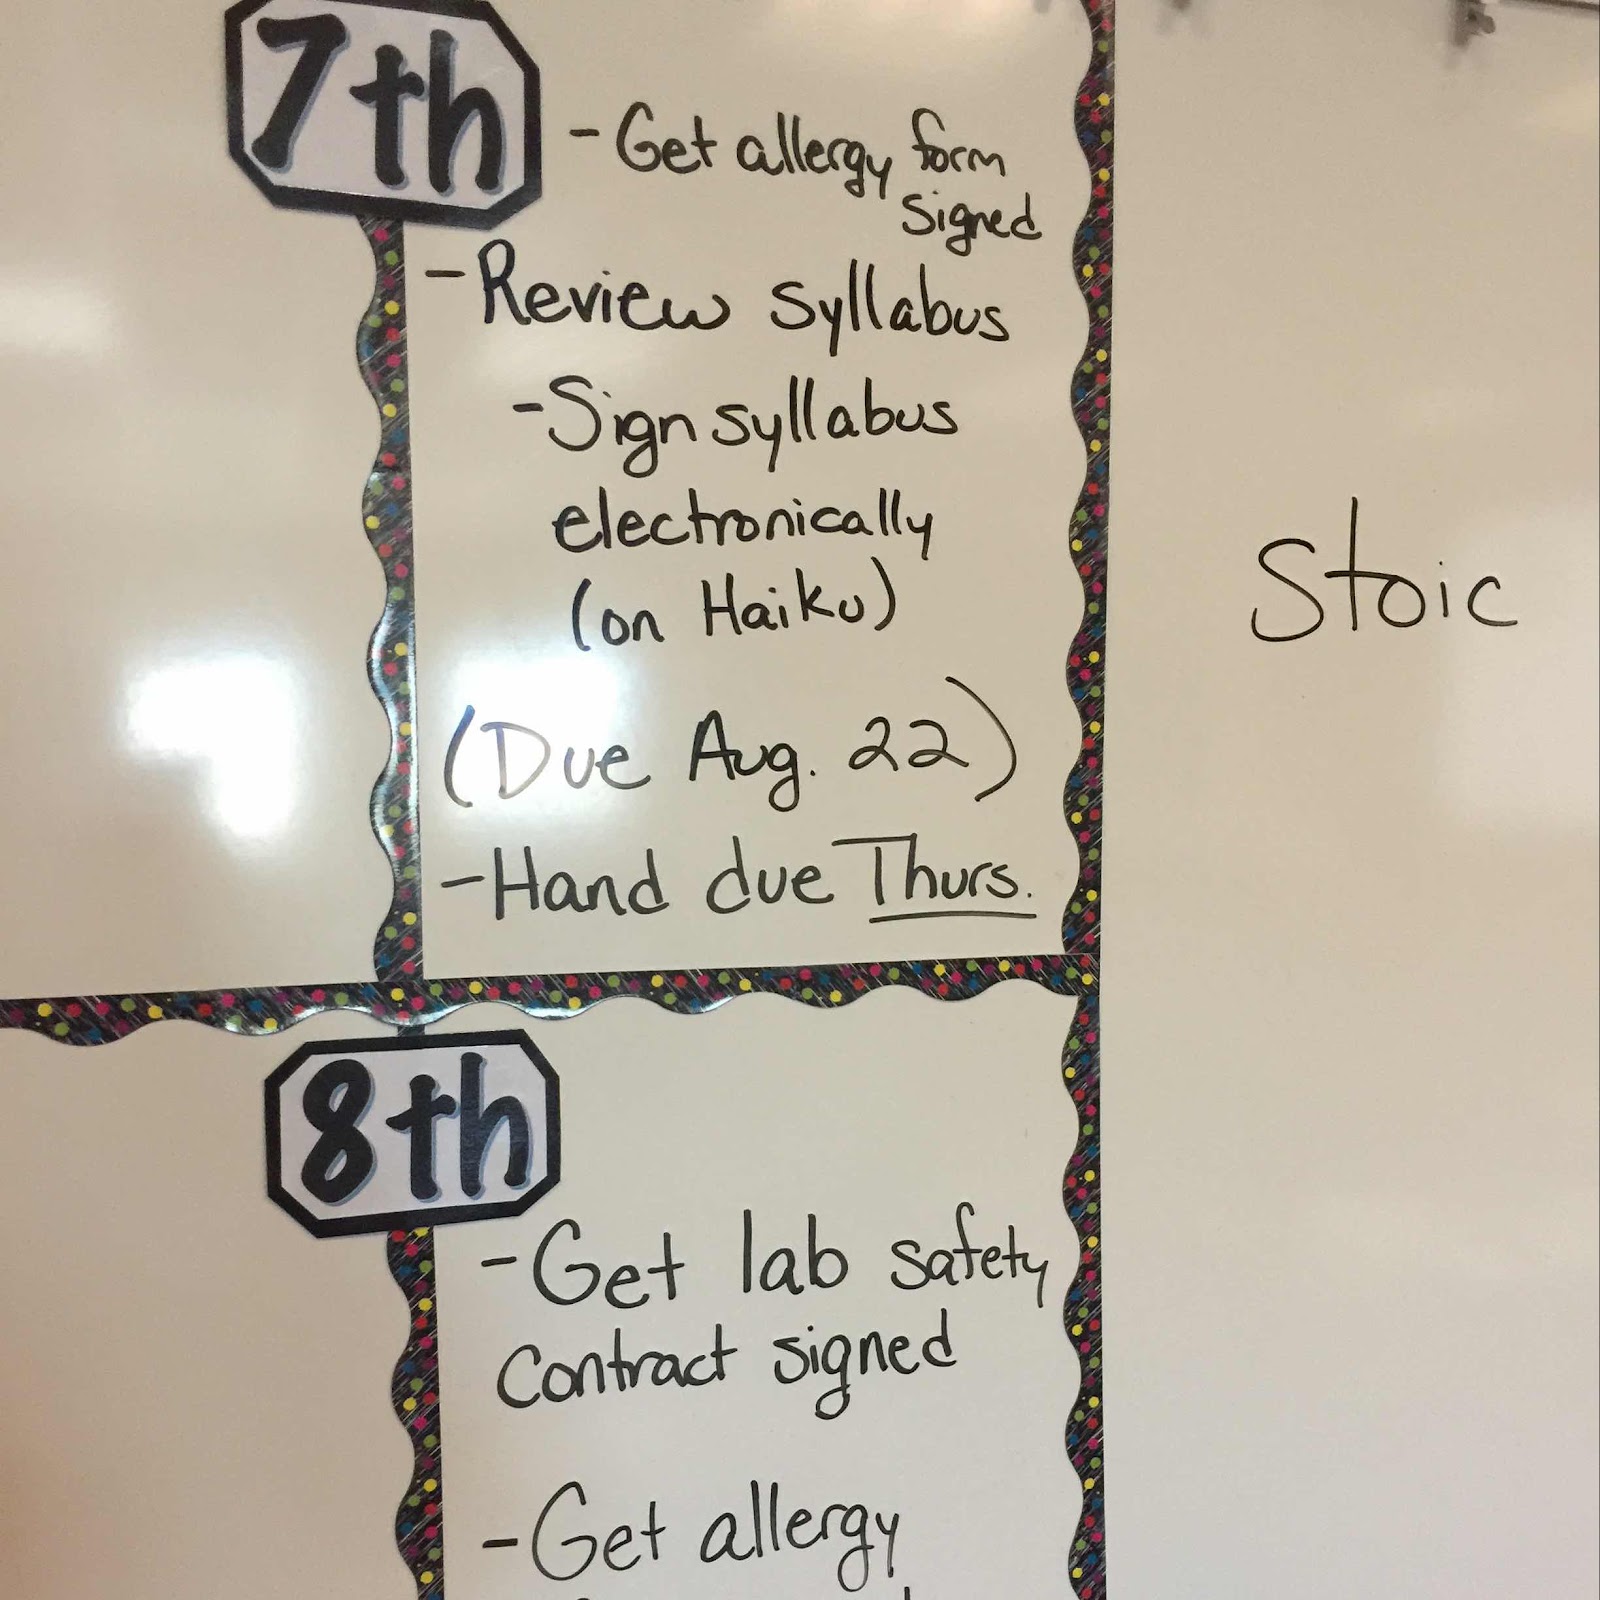 7th
- Get allergy form
signed
- Review syllabus
- Sign syllabus
electronically
(on Haiku)
(Due Aug. 22)
- Hand due Thurs.
Stoic
8th
- Get lab safety
contract signed
- Get allergy